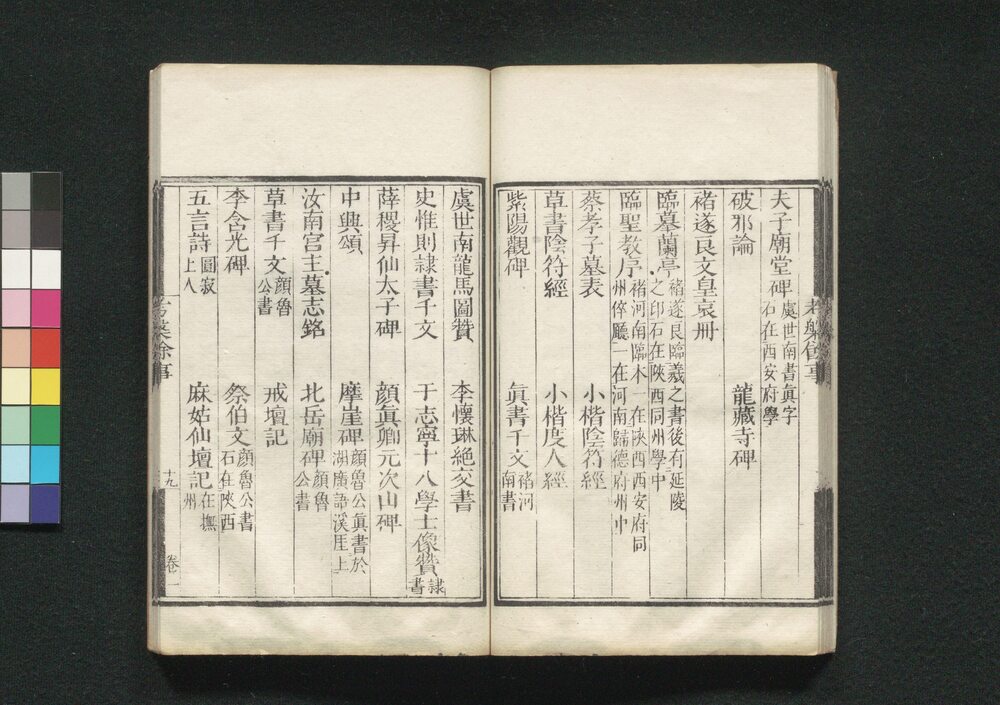 夫子廟堂碑 虞世南書眞字石在西安府學
破邪論 龍藏寺碑
褚遂良文皇哀冊
臨墓蘭亭 褚遂良臨羲之書後有延陵之印石在陝西同州學中
臨聖教序 褚河南臨本一在陝西西安府同州倅廳一在河南歸德府州中
蔡孝子墓表 小楷陰符經
草書陰符經 小楷度人經
紫陽觀碑 眞書千文 褚河南書
虞世南龍馬圖贊 李懷琳絕交書
史惟則隷書千文 于志寧十八學士像贊 隷書
薛稷昇仙太子碑 顔眞卿元次山碑
中興頌 摩崖碑 顔魯公眞書於湖廣語溪厓上
汝南宮主墓志銘 北岳廟碑 顔魯公書
草書千文 顔魯公書 戒壇記
李含光碑 祭伯文 顔魯公書石在陝西
五言詩 圓寂上人 麻姑仙壇記 在撫州
考槃餘事 十九 卷一